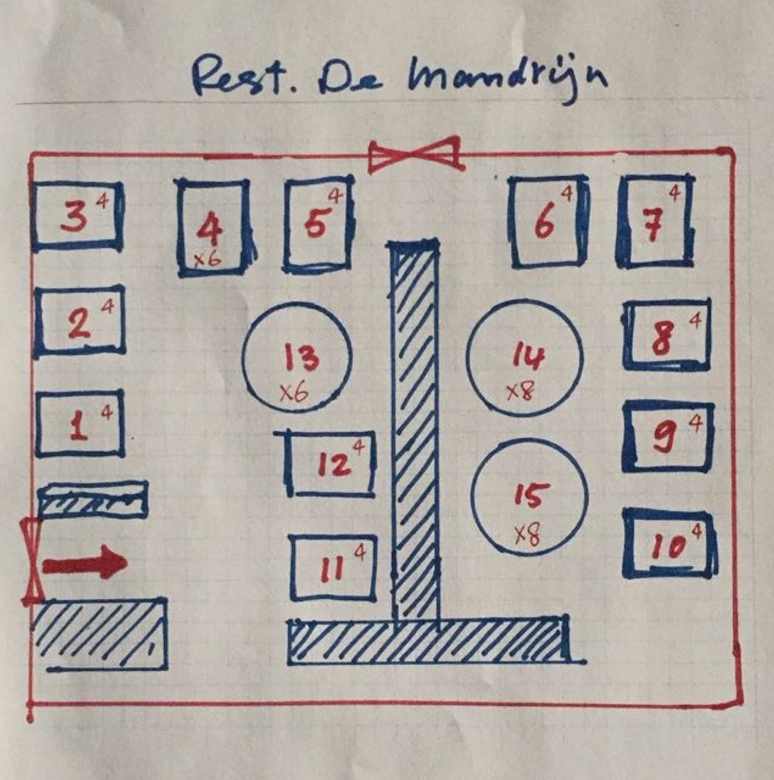 Rest. De Mandrijn
3 4
4 x6
5 4
6 4
7 4
2 4
8 4
13 x6
14 x8
1 4
9 4
12 4
15 x8
11 4
10 4